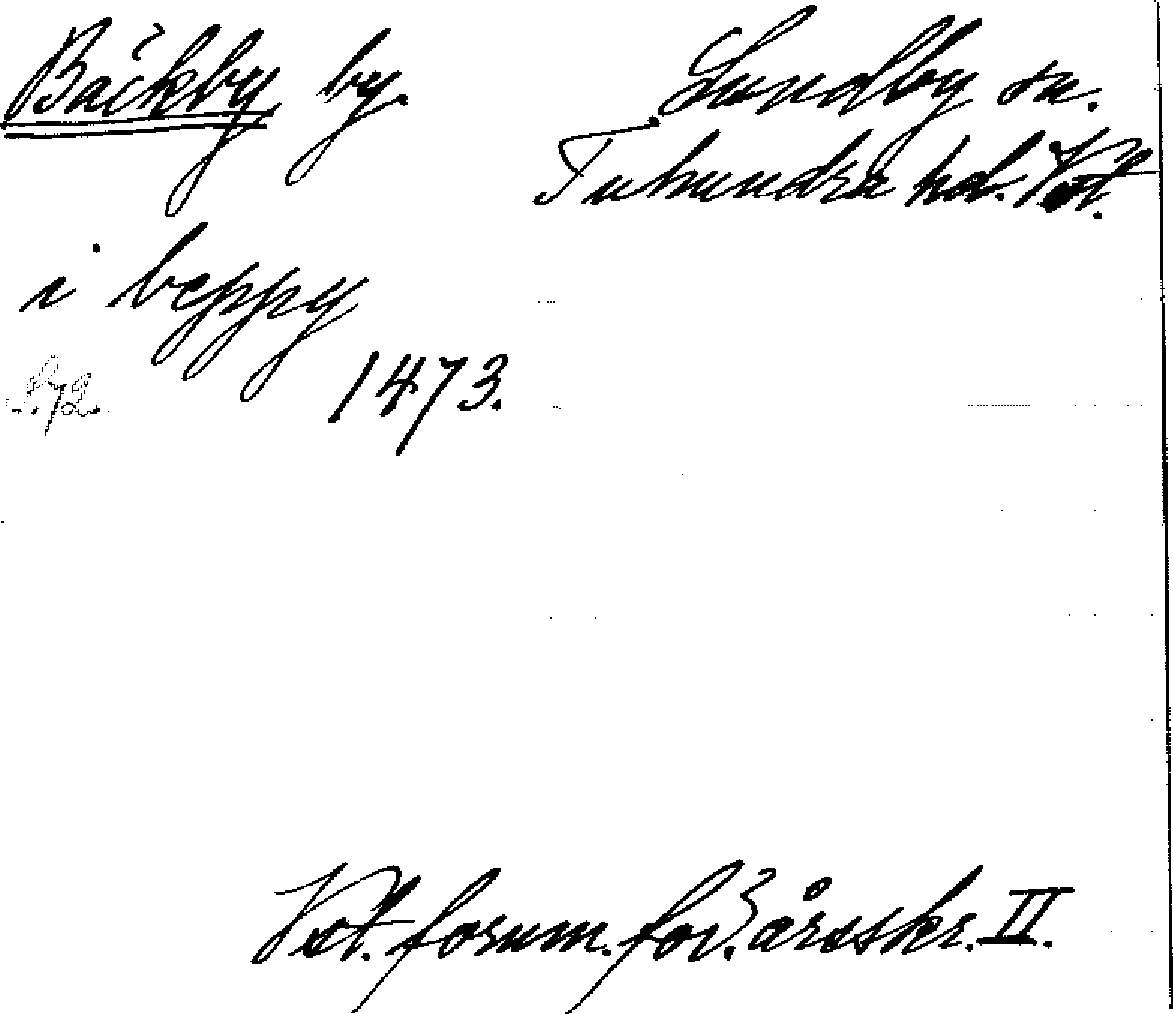 Bäckby by. Lundby sn.
Tuhundra hd. Vstl.
i beppy
s. 72. 1473.
Vstl. fornm. för. årsskr. II.